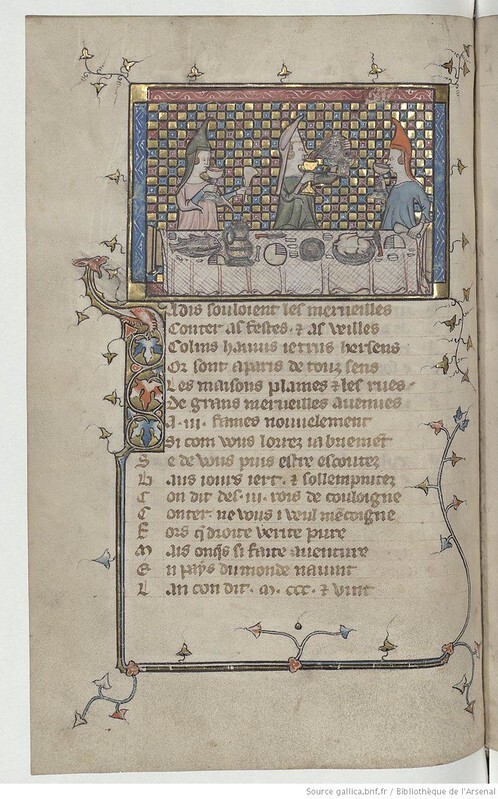 Jadis souloient les merueilles
Conter as festes · ⁊ as veilles
Colins hauuis ietrus hersens
Or sont a paris de touz sens
Les maisons plaines ⁊ les rues
De grans merueilles auenues
A · iii · fames nouuelement
Si com vous lorrez ia briement
Se de vous puis estre escoutez
Haus iours iert · ⁊ sollempnitez
Con dit des · iii · rois de couloigne
Conter ne vous i veul mẽcoigne
Fors q̃ droite verite pure
Mais onq̃s si faite auenture
En pays du monde nauint
Lan con dit · m · ccc · ⁊ vint
Source gallica.bnf.fr / Bibliothèque de l'Arsenal